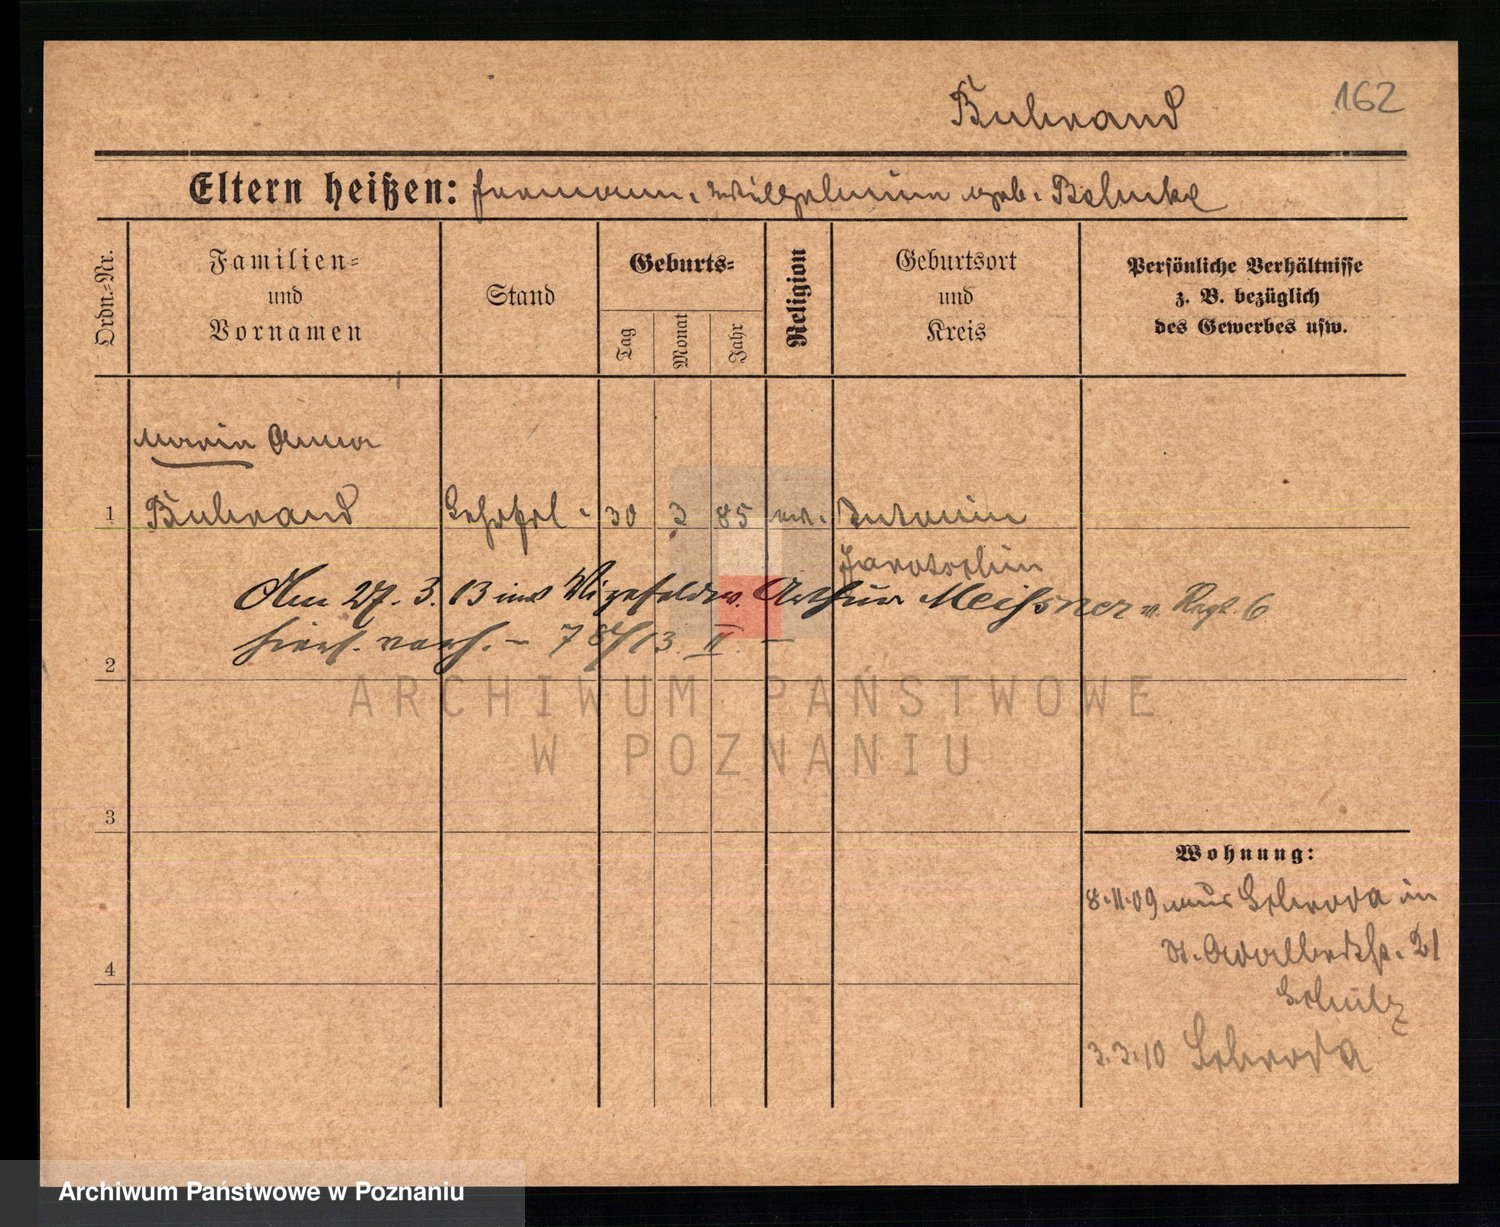 162
Eltern heißen: Hermann, Wilhelmine geb.
Ordn.-Nr.
Familien-
und
Vornamen
Stand
Geburts-
Tag
Monat
Jahr
Religion
Geburtsort
und
Kreis
Persönliche Verhältnisse
z. B. bezüglich
des Gewerbes usw.
Marie Anna
1
30 3 85 ev. Antonin
Jarotschin
Am 27. 3. 13 mit Vizefeldw. Arthur Meissner v. Regt. 6
hies. verh. – 78/13 II –
2
ARCHIWUM PAŃSTWOWE
W POZNANIU
3
4
Wohnung:
8.11.09 aus Schroda in
St. Adalbertstr. 21
Schulz
3.3.10 Schroda
Archiwum Państwowe w Poznaniu